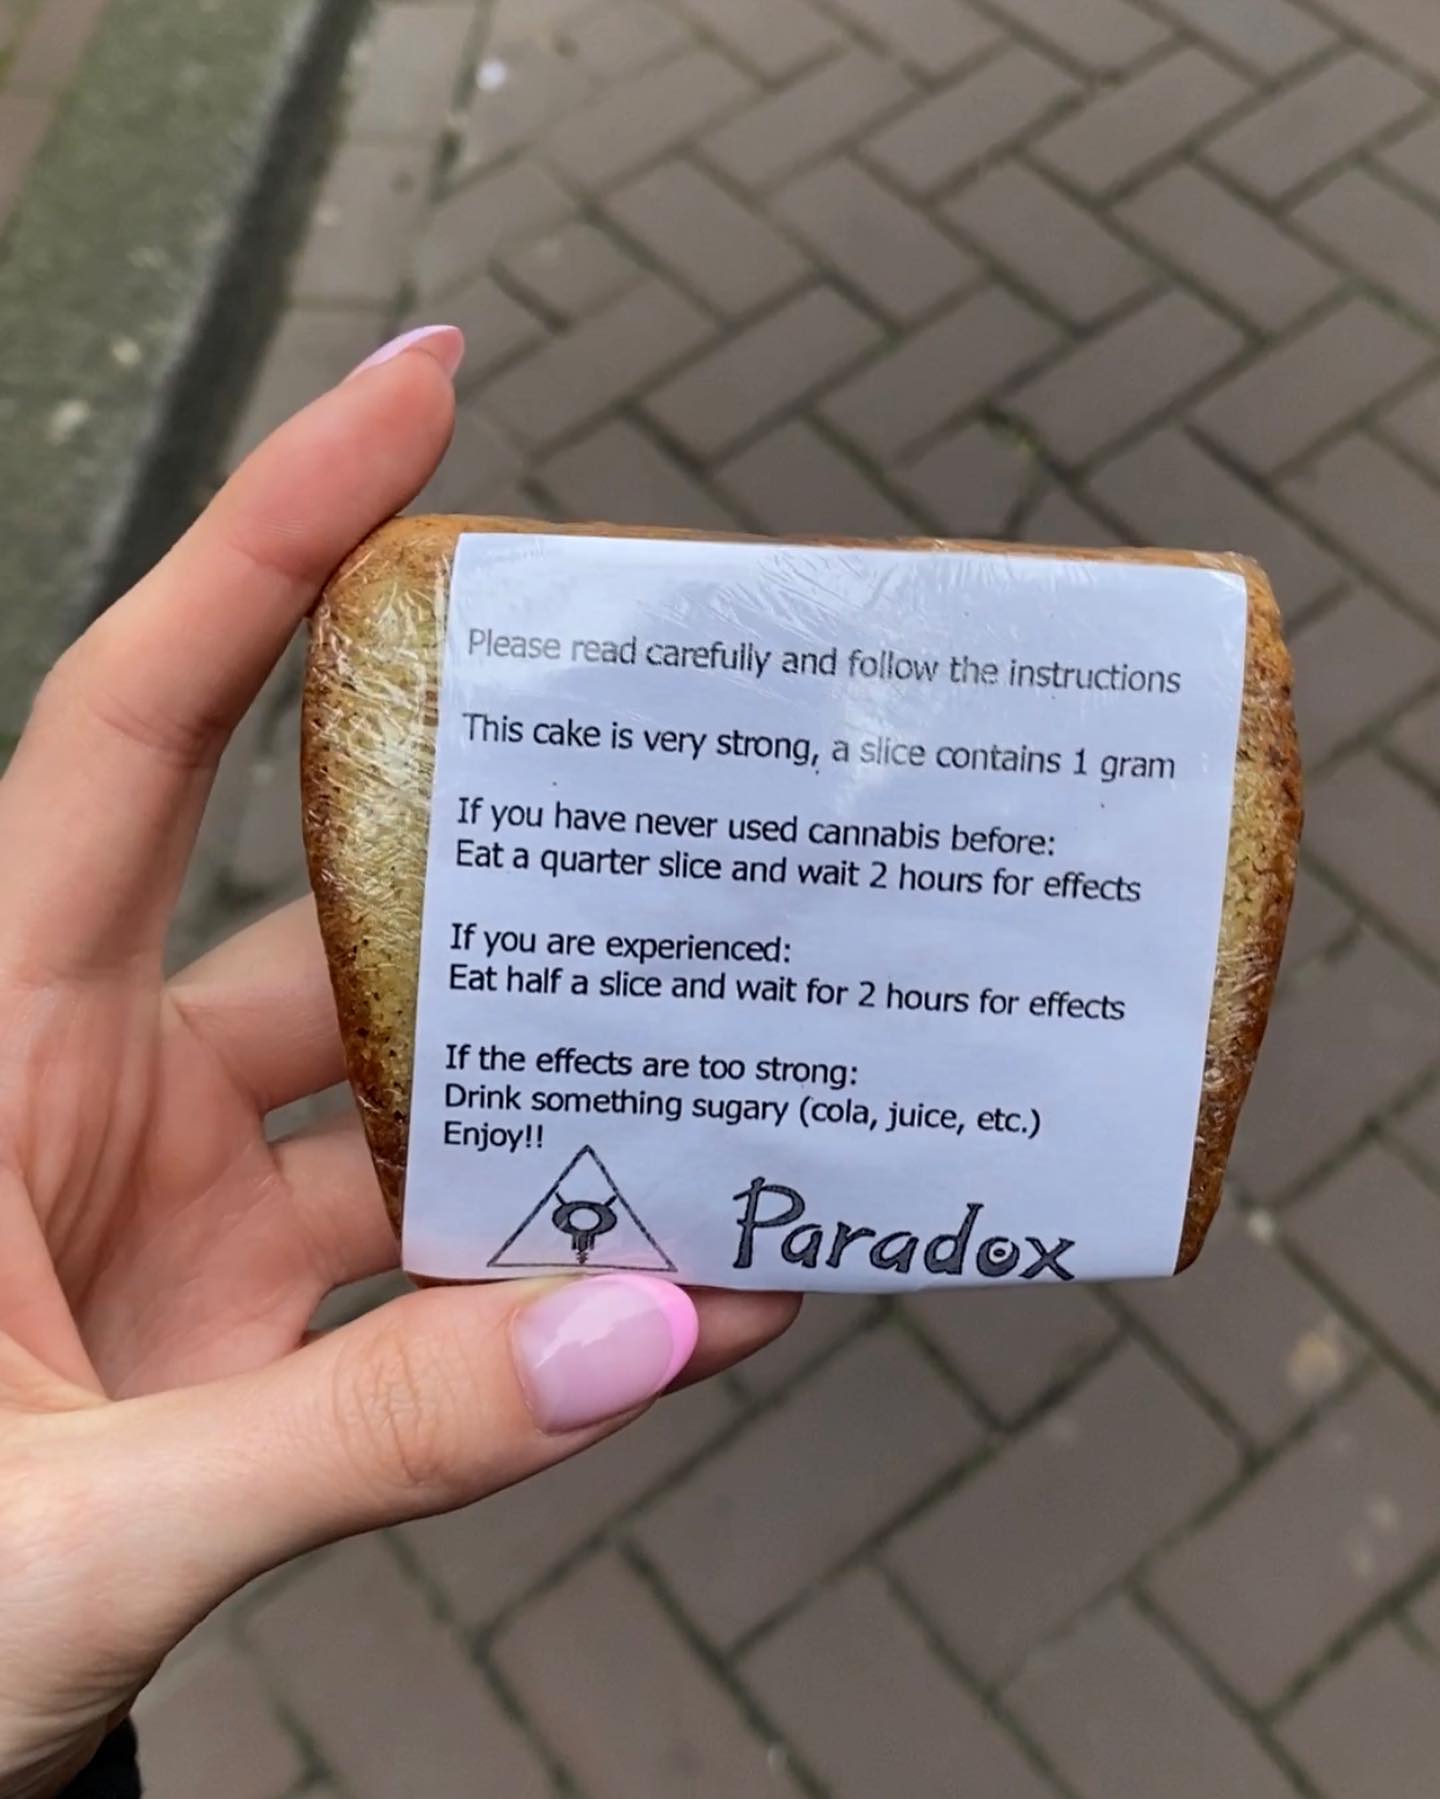 Please read carefully and follow the instructions
This cake is very strong, a slice contains 1 gram
If you have never used cannabis before:
Eat a quarter slice and wait 2 hours for effects
If you are experienced:
Eat half a slice and wait for 2 hours for effects
If the effects are too strong:
Drink something sugary (cola, juice, etc.)
Enjoy!!
Paradox